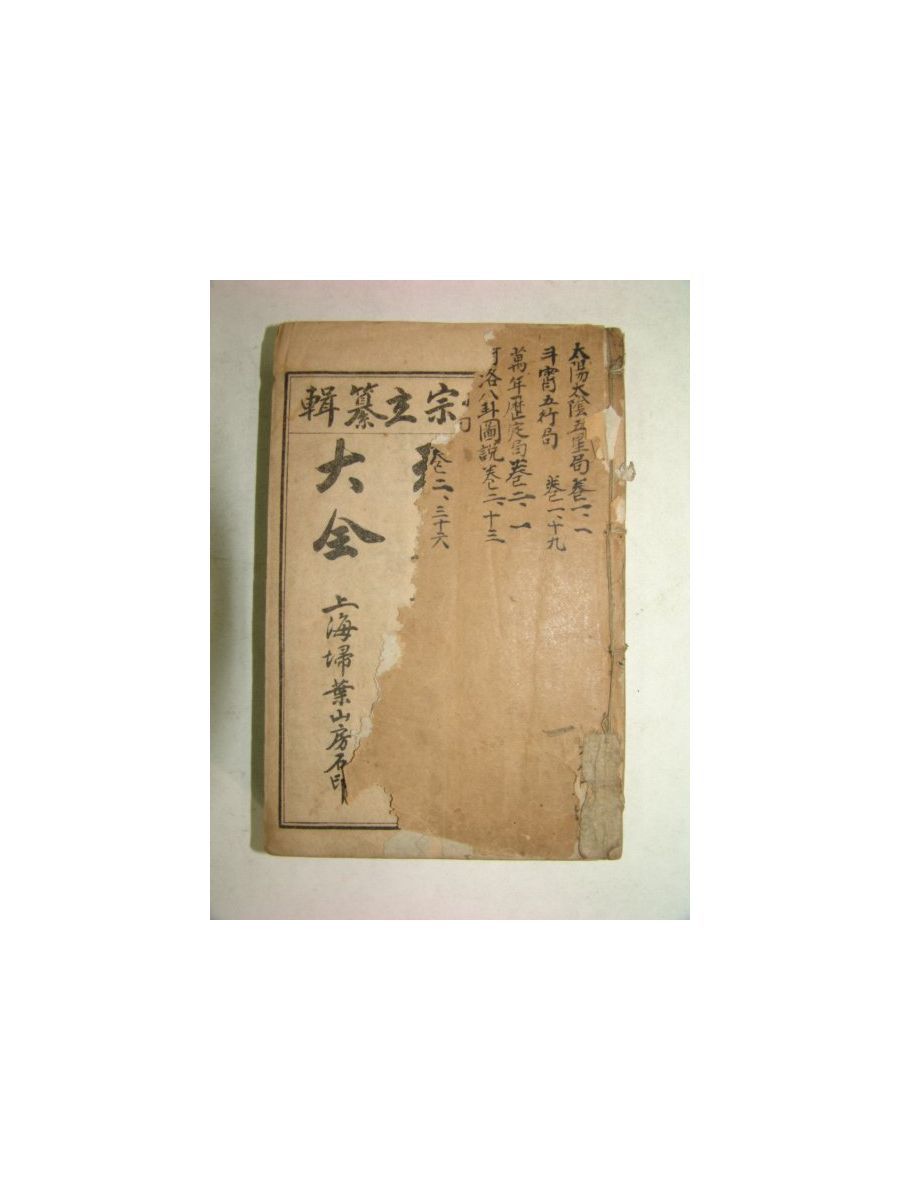 太陽太陰五星局 卷一、一
斗霄五行局 卷一、十九
萬年曆定局 卷二、一
河洛八卦圖說 卷二、十三
卷二、三十六
輯纂主宗
大全
上海埽葉山房石印